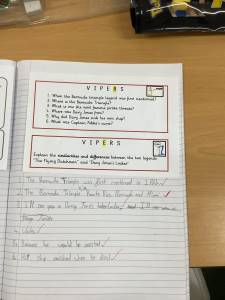 VIPERS
1. When the Bermuda triangle legend was first mentioned?
2. Where is the Bermuda Triangle?
3. What is now the most famous pirate threat?
4. Where was Davy Jones from?
5. Why did Davy Jones sink his own ship?
6. What was Captain Adda's curse?
VIPERS
Explain the similarities and differences between the two legends
'The Flying Dutchman' and 'Davy Jones's Locker'
1. The Bermuda Triangle was first mentioned in
2. The Bermuda Triangle Puerto Rico, Bermuda and Miami.
3. I'll see you in Davy Jones
Davy Jones
4. Wales
5. Because he would be
6. His ship when he died